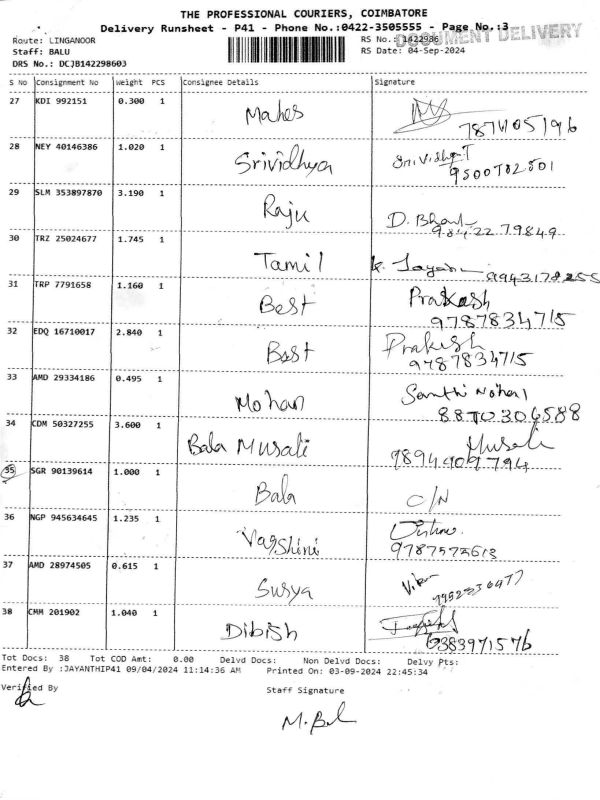 THE PROFESSIONAL COURIERS, COIMBATORE
Delivery Runsheet - P41 - Phone No.:0422-3505555 - Page No.:3
DOCUMENT DELIVERY
Route: LINGANOOR RS No.: 1422986
Staff: BALU RS Date: 04-Sep-2024
DRS No.: DCJB142298603
S No Consignment No Weight PCS Consignee Details Signature
27 KDI 992151 0.300 1 Mahes
28 NEY 40146386 1.020 1 Srividhya Srividhya
29 SLM 353897870 3.190 1 Raju D.
98422 79849
30 TRZ 25024677 1.745 1 Tamil
9943178255
31 TRP 7791658 1.160 1 Best Prakash
9787834715
32 EDQ 16710017 2.840 1 Best Prakash
9787834715
33 AMD 29334186 0.495 1 Mohan Santhi Mohan
34 CDM 50327255 3.600 1 Bala Musali Musali
9894909794
35 SGR 90139614 1.000 1 Bala C/N
36 NGP 945634645 1.235 1 Varshini
9787573613
37 AMD 28974505 0.615 1 Surya
38 CMM 201902 1.040 1 Dibish
6383971576
Tot Docs: 38 Tot COD Amt: 0.00 Delvd Docs: Non Delvd Docs: Delvy Pts:
Entered By :JAYANTHIP41 09/04/2024 11:14:36 AM Printed On: 03-09-2024 22:45:34
Verified By Staff Signature
M. Bal